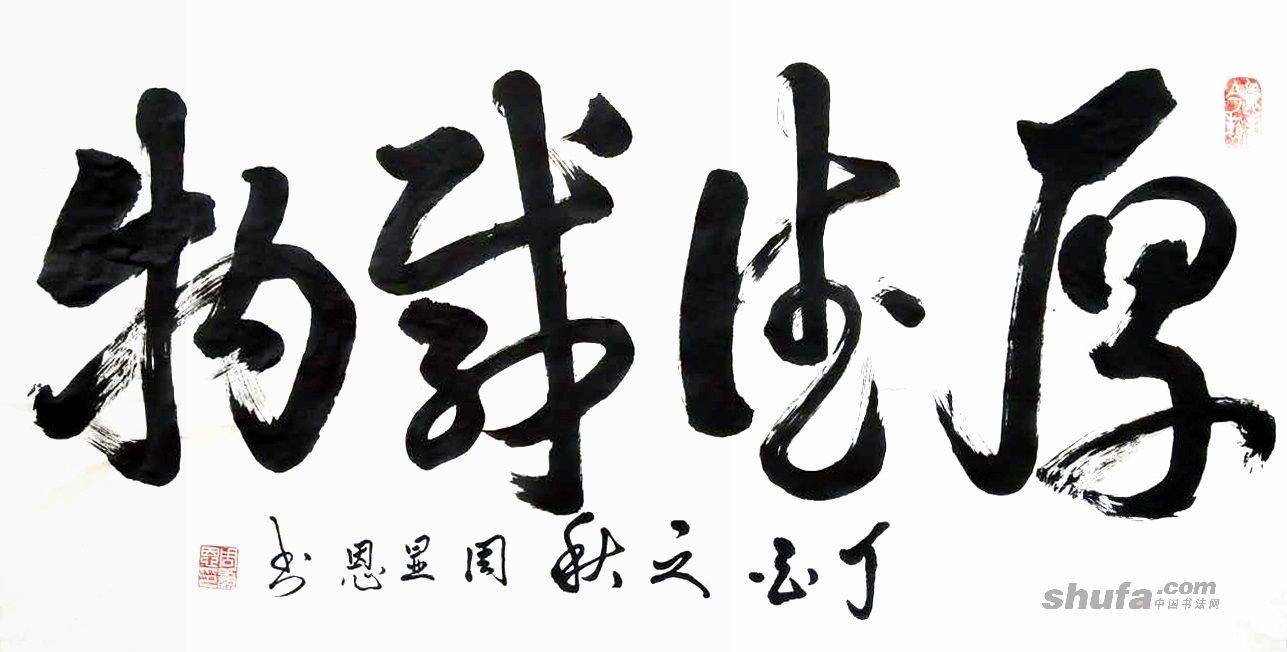 厚德载物
丁酉之秋周显恩书
shufa.com
中国书法网